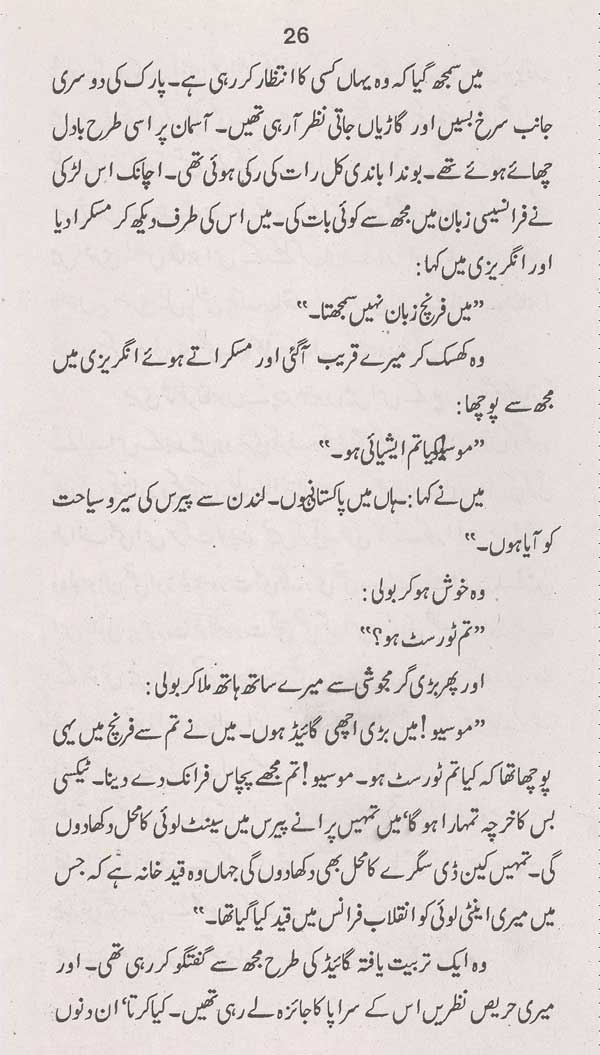 26
میں سمجھ گیا کہ وہ یہاں کسی کا انتظار کر رہی ہے۔ پارک کی دوسری
جانب سرخ بسیں اور گاڑیاں جاتی نظر آ رہی تھیں۔ آسمان پر اسی طرح بادل
چھائے ہوئے تھے۔ بوندا باندی کل رات کی رکی ہوئی تھی۔ اچانک اس لڑکی
نے فرانسیسی زبان میں مجھ سے کوئی بات کی۔ میں اس کی طرف دیکھ کر مسکرا دیا
اور انگریزی میں کہا:
”میں فرنچ زبان نہیں سمجھتا۔“
وہ کھسک کر میرے قریب آ گئی اور مسکراتے ہوئے انگریزی میں
مجھ سے پوچھا:
”موسیو کیا تم ایشیائی ہو۔“
میں نے کہا:۔ہاں میں پاکستانی ہوں۔ لندن سے پیرس کی سیر و سیاحت
کو آیا ہوں۔“
وہ خوش ہو کر بولی:
”تم ٹورسٹ ہو؟“
اور پھر بڑی گرمجوشی سے میرے ساتھ ہاتھ ملا کر بولی:
”موسیو! میں بڑی اچھی گائیڈ ہوں۔ میں نے تم سے فرنچ میں یہی
پوچھا تھا کہ کیا تم ٹورسٹ ہو۔ موسیو! تم مجھے پچاس فرانک دے دینا۔ ٹیکسی
بس کا خرچہ تمہارا ہو گا‘ میں تمہیں پرانے پیرس میں سینٹ لوئی کا محل دکھا دوں
گی۔ تمہیں کین ڈی سگرے کا محل بھی دکھا دوں گی جہاں وہ قید خانہ ہے کہ جس
میں میری اینٹی لوئی کو انقلاب فرانس میں قید کیا گیا تھا۔“
وہ ایک تربیت یافتہ گائیڈ کی طرح مجھ سے گفتگو کر رہی تھی۔ اور
میری حریص نظریں اس کے سراپا کا جائزہ لے رہی تھیں۔ کیا کرتا‘ ان دنوں